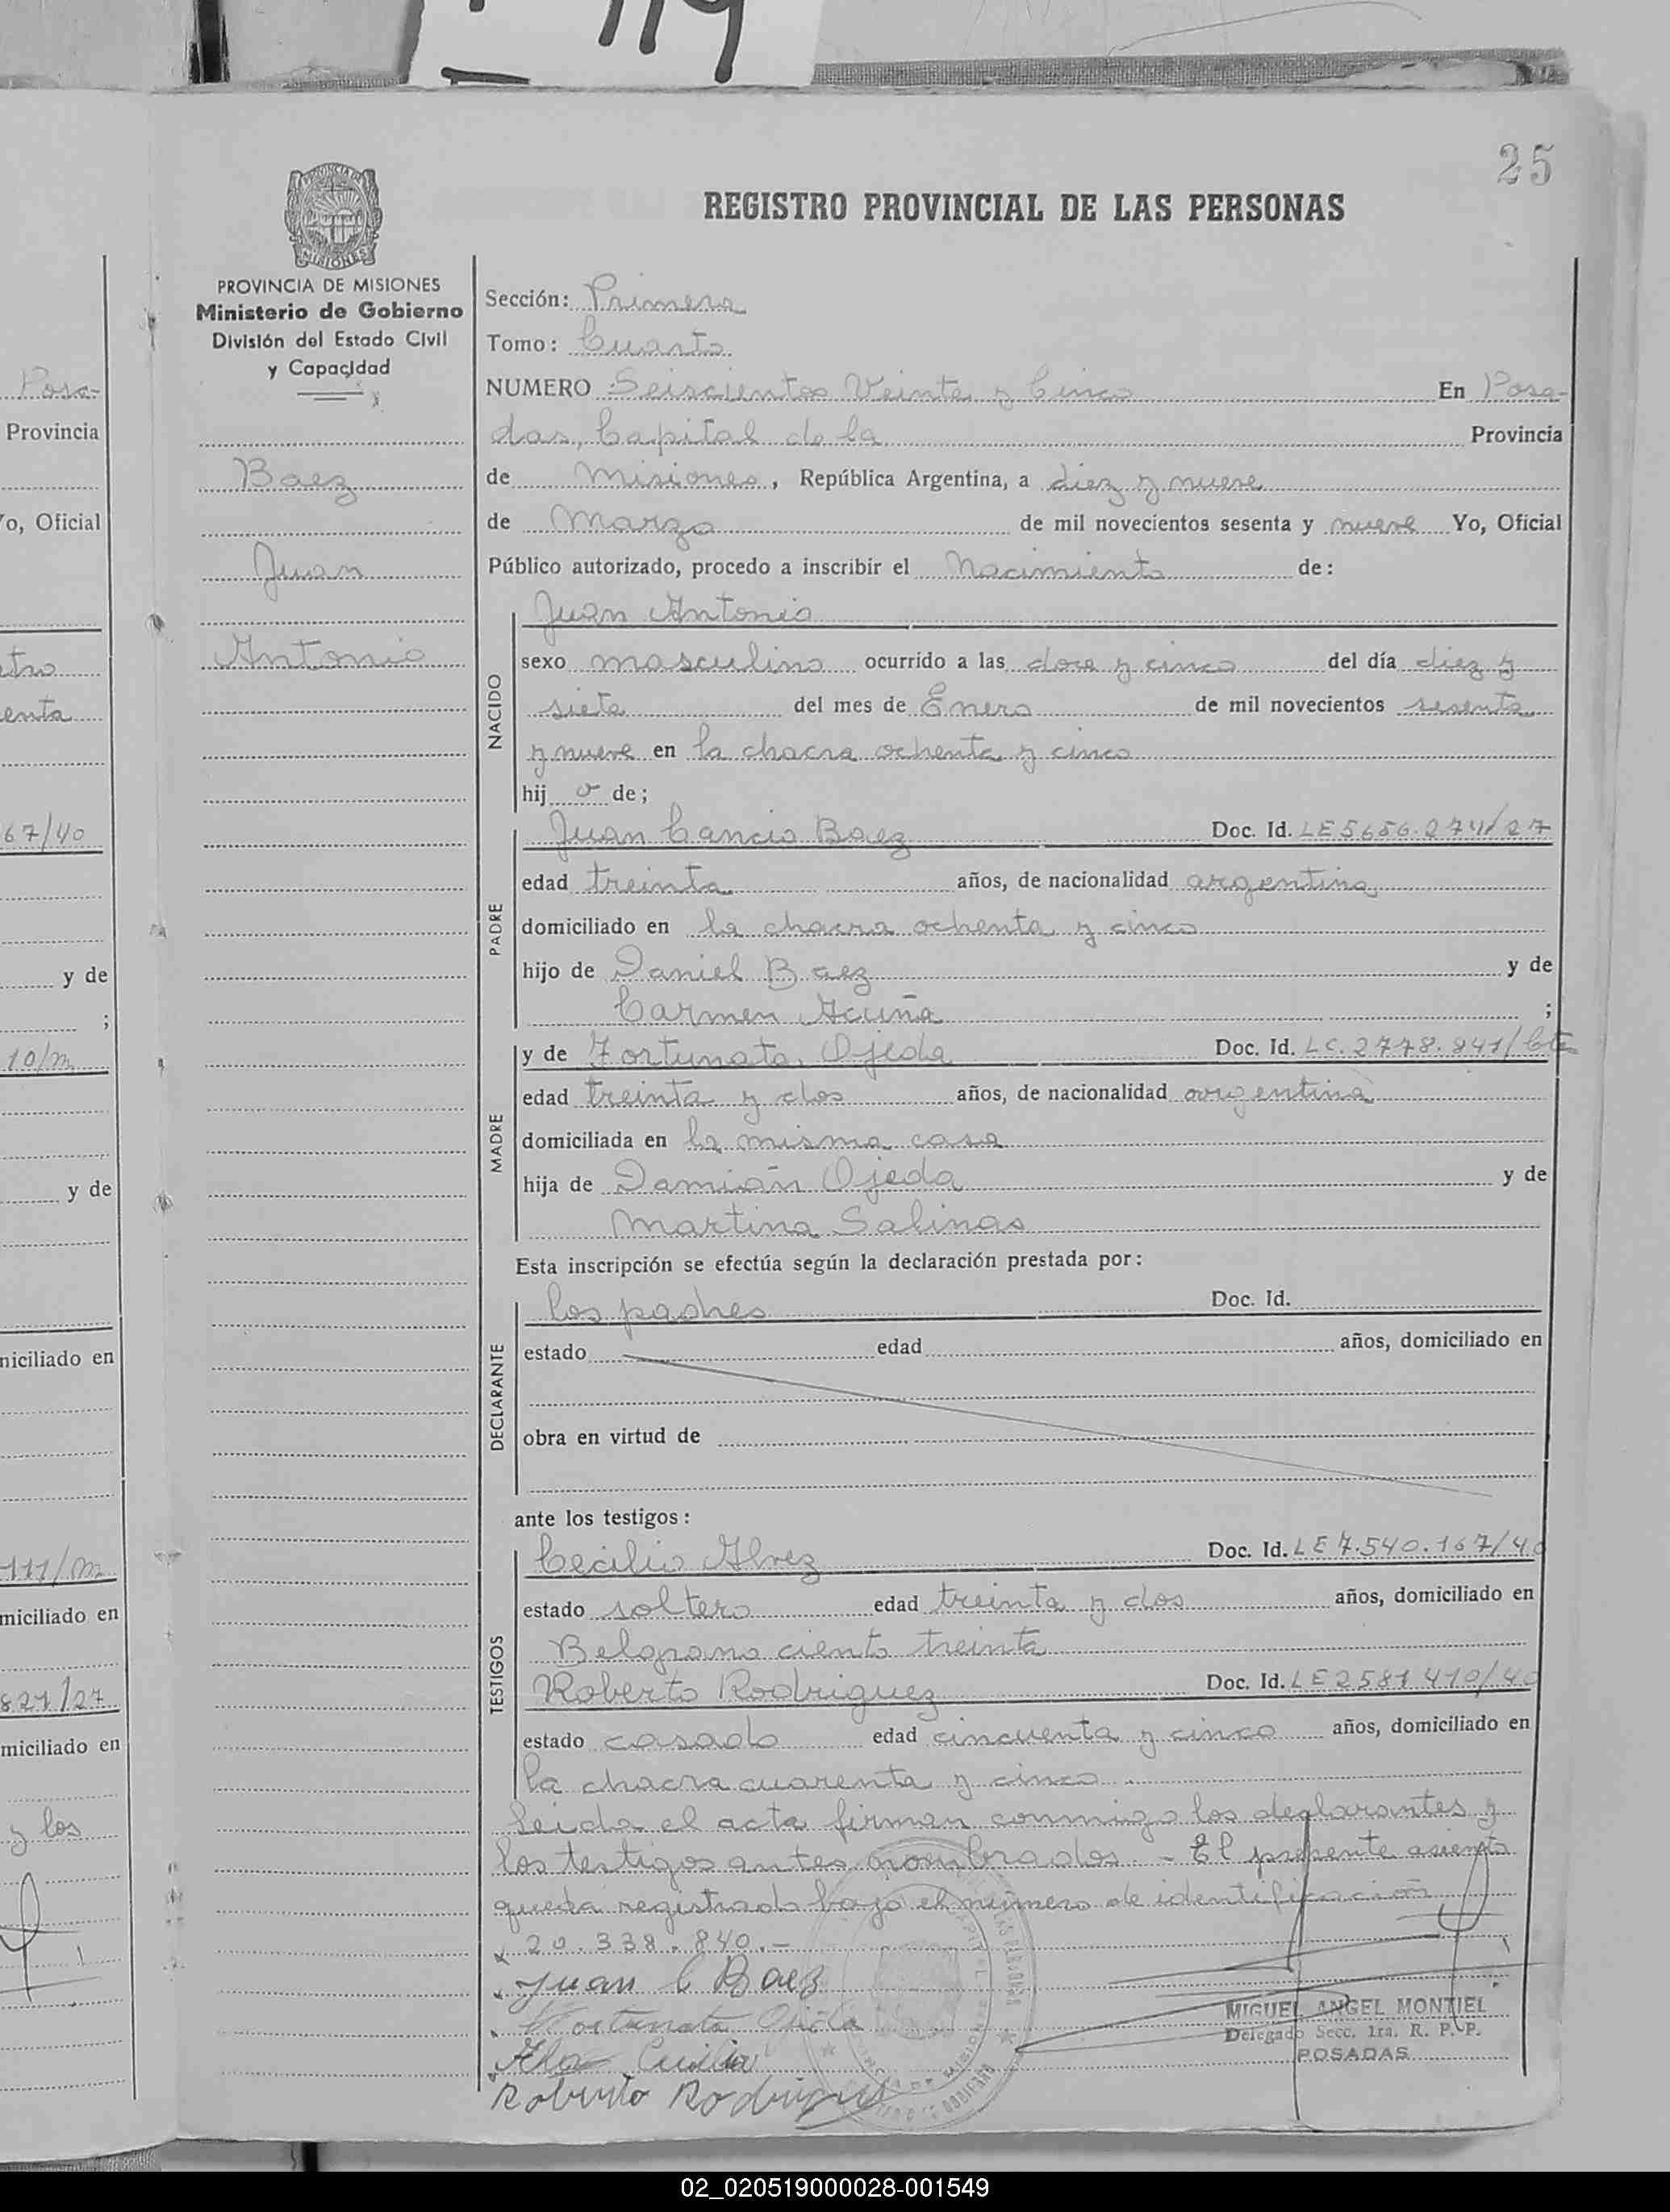 25
PROVINCIA DE MISIONES
Ministerio de Gobierno
División del Estado Civil
y Capacidad
Baez
Juan
Antonio
REGISTRO PROVINCIAL DE LAS PERSONAS
Sección: Primera
Tomo: Cuarto
NUMERO Seiscientos Veinte y Cinco En Posa-
das, Capital de la Provincia
de Misiones, República Argentina, a diez y nueve
de Marzo de mil novecientos sesenta y nueve Yo, Oficial
Público autorizado, procedo a inscribir el Nacimiento de:
NACIDO
Juan Antonio
sexo masculino ocurrido a las doce y cinco del día diez y
siete del mes de Enero de mil novecientos sesenta
y nueve en la chacra ochenta y cinco
hij o de;
PADRE
Juan Cancio Baez Doc. Id. LE 5656.274/27
edad treinta años, de nacionalidad argentina
domiciliado en la chacra ochenta y cinco
hijo de Daniel Baez y de
Carmen Acuña ;
MADRE
y de Fortunata Ojeda Doc. Id. LC. 2778.841/
edad treinta y dos años, de nacionalidad argentina
domiciliada en la misma casa
hija de Damián Ojeda y de
Martina Salinas
Esta inscripción se efectúa según la declaración prestada por:
DECLARANTE
los padres Doc. Id.
estado edad años, domiciliado en
obra en virtud de
ante los testigos:
TESTIGOS
Cecilio Alvez Doc. Id. LE 7.540.167/40
estado soltero edad treinta y dos años, domiciliado en
Belgrano ciento treinta
Roberto Rodriguez Doc. Id. LE 2581410/40
estado casado edad cincuenta y cinco años, domiciliado en
la chacra cuarenta y cinco
Leida el acta firman conmigo los declarantes y
los testigos antes nombrados. - El presente asiento
queda registrado bajo el número de identificación
20.338.840.-
Juan C Baez
Fortunata Ojeda
Cecilio
Roberto Rodriguez
MIGUEL ANGEL MONTIEL
Delegado Secc. 1ra. R. P. P.
POSADAS
02_020519000028-001549